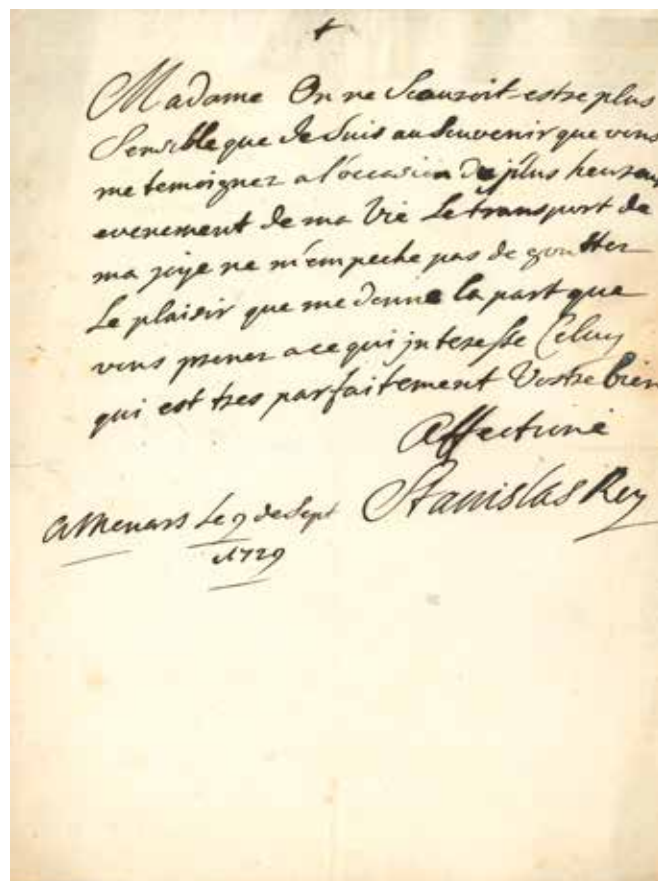 Madame On ne Scauroit estre plus
Sensible que Je Suis au Souvenir que vous
me temoignez a l'occasion du plus heureux
evenement de ma Vie Le transport de
ma joye ne m'empeche pas de goutter
Le plaisir que me donne la part que
vous prenez a ce qui interesse Celuy
qui est tres parfaitement Vostre bien
Affectioné
Stanislas Roy
a Menars Le 9 de Sept
1729